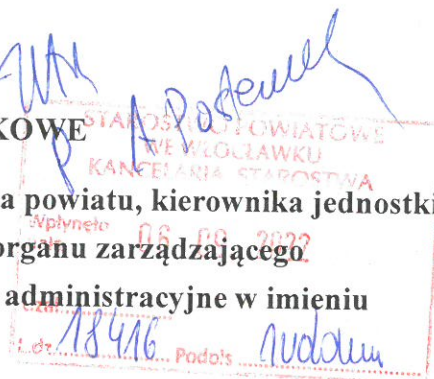 KOWE
STAROSTWO POWIATOWE
WE WŁOCŁAWKU
KANCELARIA STAROSTWA
a powiatu, kierownika jednostki
Wpłynęło
06. 09. 2022
organu zarządzającego
administracyjne w imieniu
L.dz. 18416 Podpis